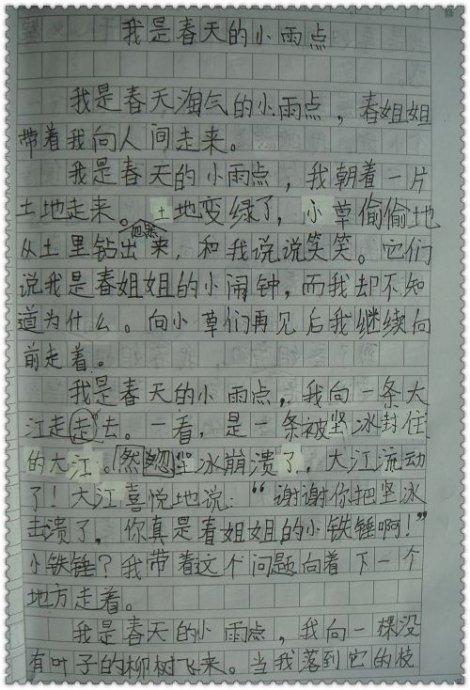 我是春天的小雨点
我是春天淘气的小雨点，春姐姐
带着我向人间走来。
我是春天的小雨点，我朝着一片
土地走来。土地变绿了，小草偷偷地
从土里钻出来，和我说说笑笑。它们
说我是春姐姐的小闹钟，而我却不知
道为什么。向小草们再见后我继续向
前走着。
我是春天的小雨点，我向一条大
江走走去。一看，是一条被坚冰封住
的大江。然忽坚冰崩溃了，大江流动
了！大江喜悦地说：“谢谢你把坚冰
击溃了，你真是春姐姐的小铁锤啊！”
小铁锤？我带着这个问题向着下一个
地方走着。
我是春天的小雨点，我向一棵没
有叶子的柳树飞来。当我落到它的枝